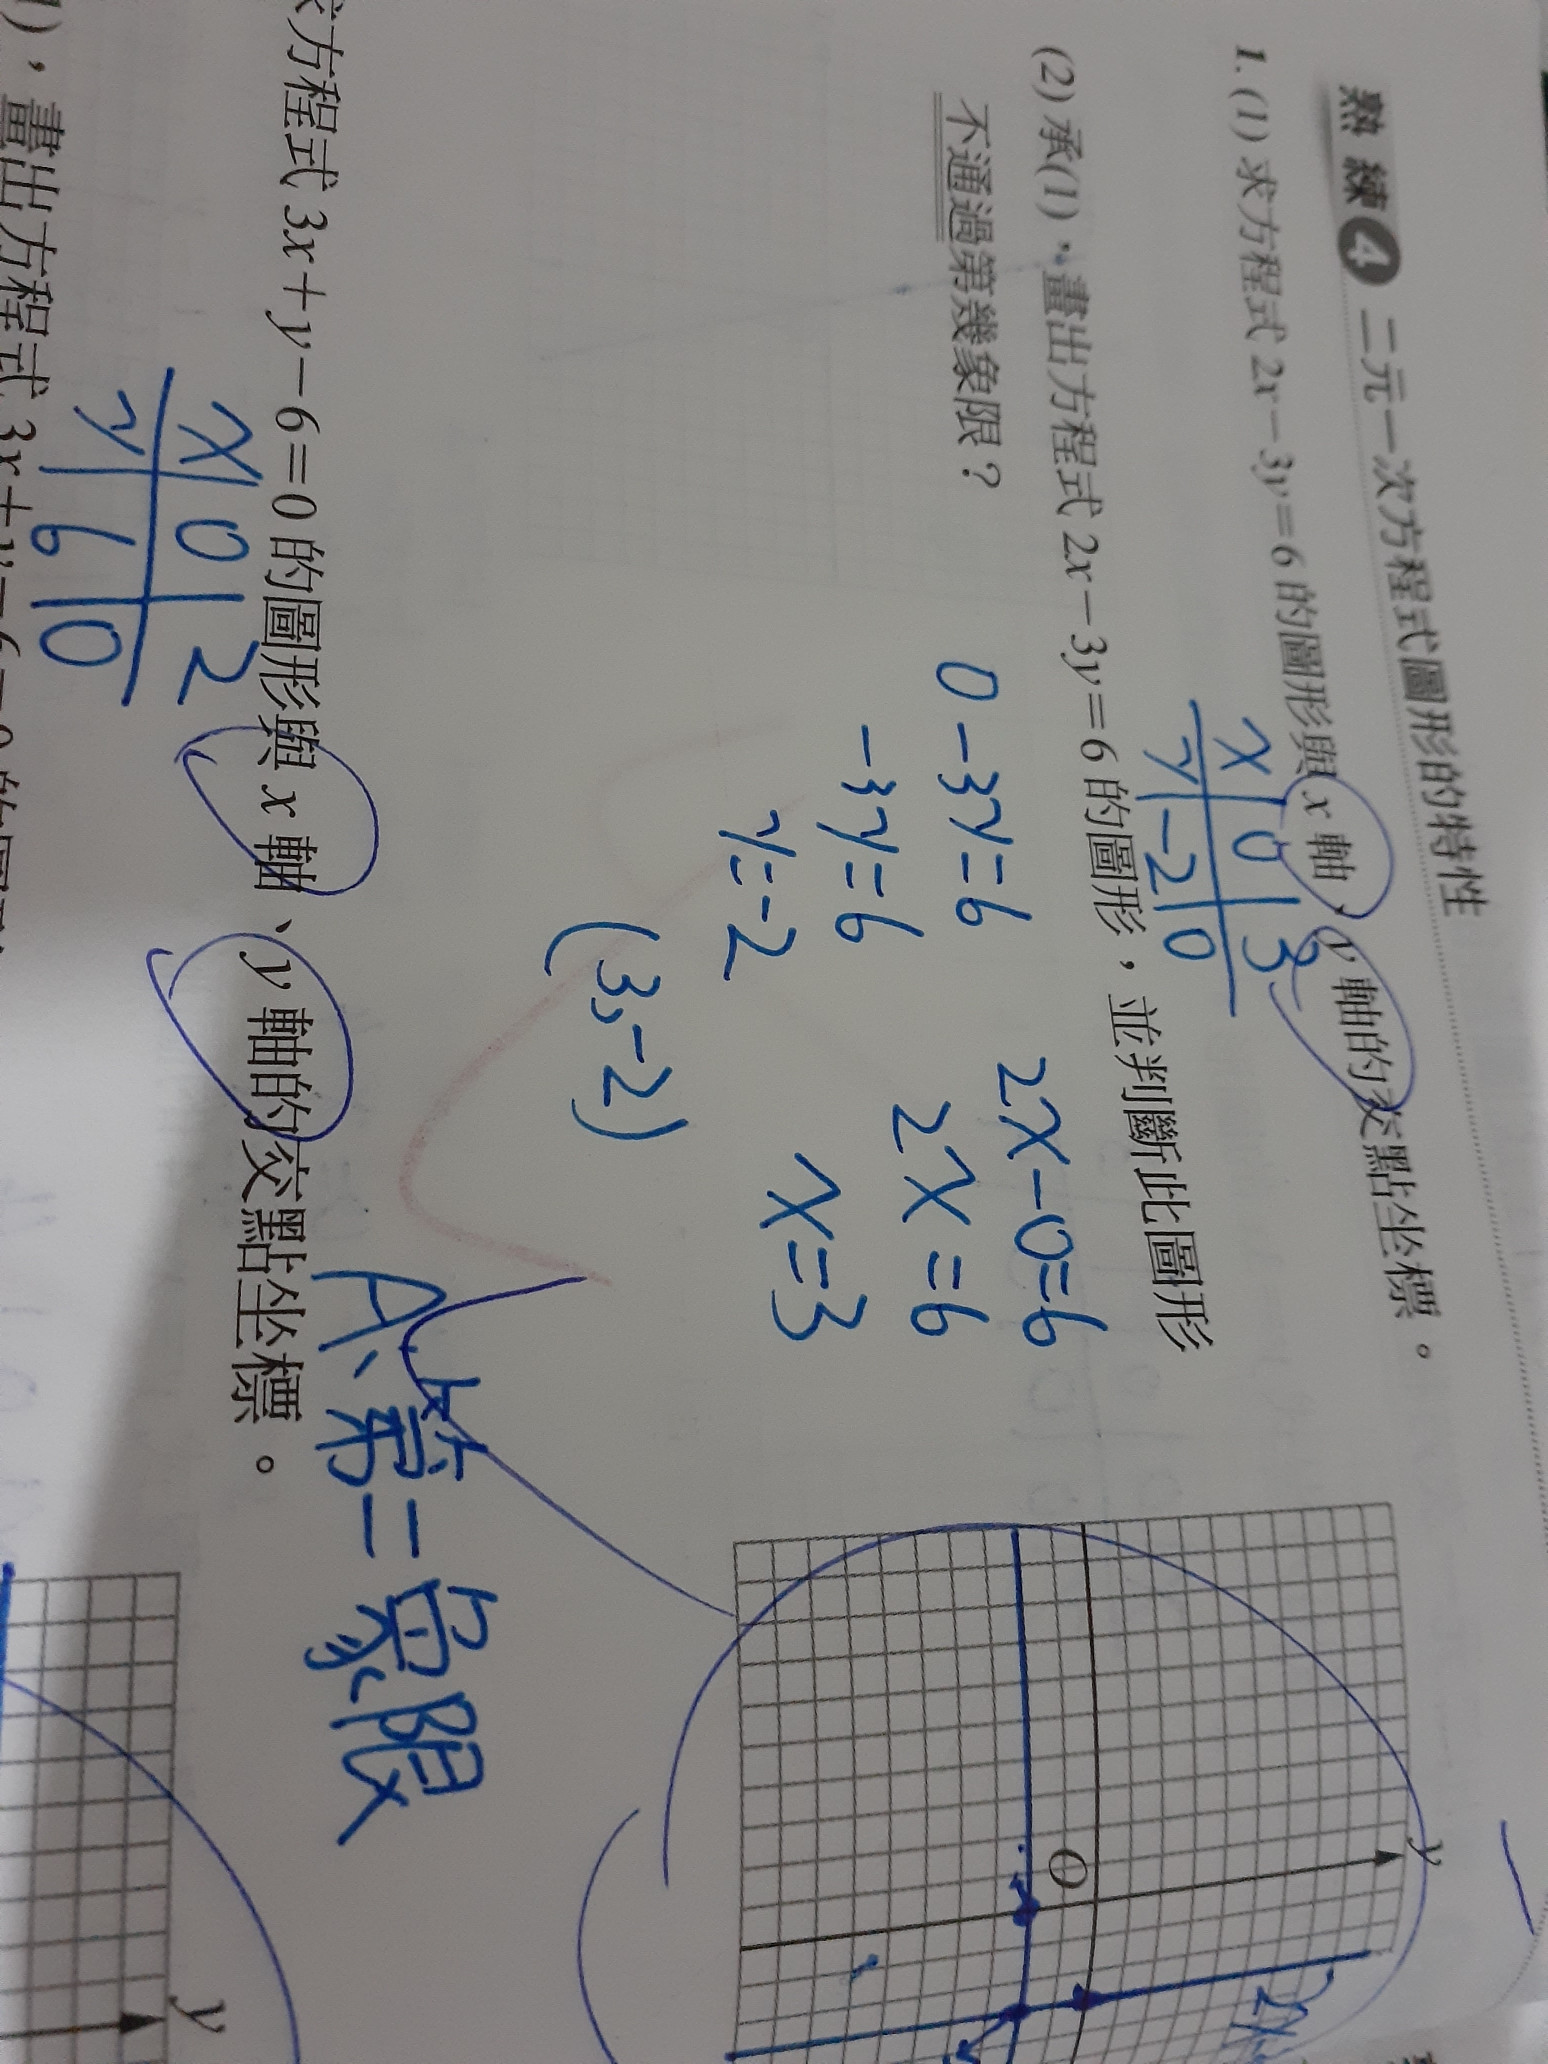 熟練4 二元一次方程式圖形的特性
1. (1) 求方程式 2x-3y=6 的圖形與 x 軸、y 軸的交點坐標。
x 0 3
y -2 0
(2) 承(1),畫出方程式 2x-3y=6 的圖形,並判斷此圖形
不通過第幾象限?
0-3y=6
-3y=6
y=-2
2x-0=6
2x=6
x=3
(3,-2)
A、第二象限
y
O
2x
方程式 3x+y-6=0 的圖形與 x 軸、y 軸的交點坐標。
x 0 2
y 6 0
1),畫出方程式 3x+y-6=0 的圖形
y